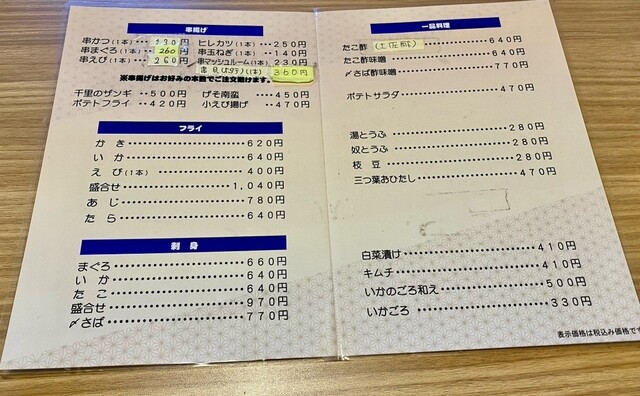 串揚げ
串かつ(1本) 230円 ヒレカツ(1本)・250円
串まぐろ(1本) 260円 串玉ねぎ(1本)・・・140円
串えび(1本)・・ 260円 串マッシュルーム(1本)・230円
(1本) 360円
※串揚げはお好みの本数でご注文賜けます。
千里のザンギ・・500円 げそ南蛮・・・・・・450円
ポテトフライ・・420円 小えび揚げ・・・・470円
フライ
かき・・・・・・・・・・620円
いか・・・・・・・・・・640円
えび(1本)・・・・・・400円
盛合せ・・・・・・・・1,040円
あじ・・・・・・・・・・780円
たら・・・・・・・・・・640円
刺身
まぐろ・・・・・・・・・・660円
いか・・・・・・・・・・640円
たこ・・・・・・・・・・640円
盛合せ・・・・・・・・・・970円
〆さば・・・・・・・・・・770円
一品料理
たこ酢(土佐酢)・・・・・・640円
たこ酢味噌・・・・・・・・・・660円
〆さば酢味噌・・・・・・・・770円
ポテトサラダ・・・・・・・・470円
湯とうふ・・・・・・・・・・280円
奴とうふ・・・・・・・・・・280円
枝豆・・・・・・・・・・280円
三つ葉おひたし・・・・・・470円
白菜漬け・・・・・・・・・・410円
キムチ・・・・・・・・・・410円
いかのごろ和え・・・・・・500円
いかごろ・・・・・・・・・・330円
表示価格は税込み価格です